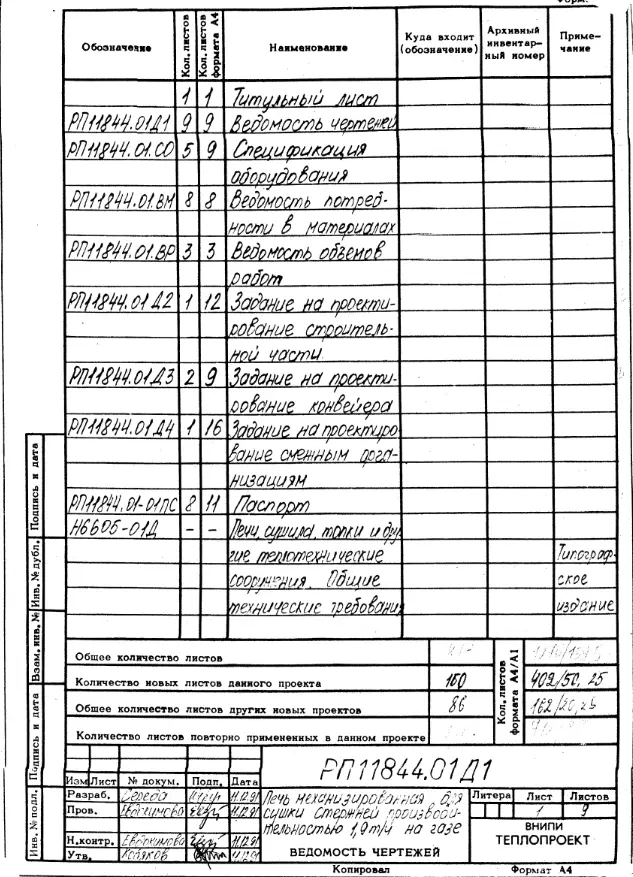 Обозначение Кол. листов Кол. листов формата А4 Наименование Куда входит (обозначение) Архивный инвентарный номер Примечание
1 1 Титульный лист
РП11844.01Д1 9 9 Ведомость чертежей
РП11844.01.СО 5 9 Спецификация
оборудования
РП11844.01.ВМ 8 8 Ведомость потреб-
ности в материалах
РП11844.01.ВР 3 3 Ведомость объемов
работ
РП11844.01Д2 1 12 Задание на проекти-
рование строитель-
ной части
РП11844.01Д3 2 9 Задание на проекти-
рование конвейера
РП11844.01Д4 1 16 Задание на проектиро
вание смежным орга-
низациям
РП11844.01-01ПС 8 11 Паспорт
Н6605-01Д - - Печи, сушила, топки и дру
гие теплотехнические Типограф-
сооружения. Общие ское
технические требования издание
Общее количество листов
Количество новых листов данного проекта 150 402/50,25
Общее количество листов других новых проектов 86
Количество листов повторно примененных в данном проекте
Кол. листов формата А4/А1
РП11844.01Д1
Изм Лист № докум. Подп. Дата
Разраб. Середа 11.12.91
Пров. Евдокимова 11.12.91
Н.контр. Евдокимова 11.12.91
Утв. 11.12.91
Печь механизированная для
сушки стержней производи-
тельностью 1,9т/ч на газе
ВЕДОМОСТЬ ЧЕРТЕЖЕЙ
Литера Лист Листов
1 9
ВНИПИ
ТЕПЛОПРОЕКТ
Копировал Формат А4
Инв. № подл. Подпись и дата Взам. инв. № Инв. № дубл. Подпись и дата